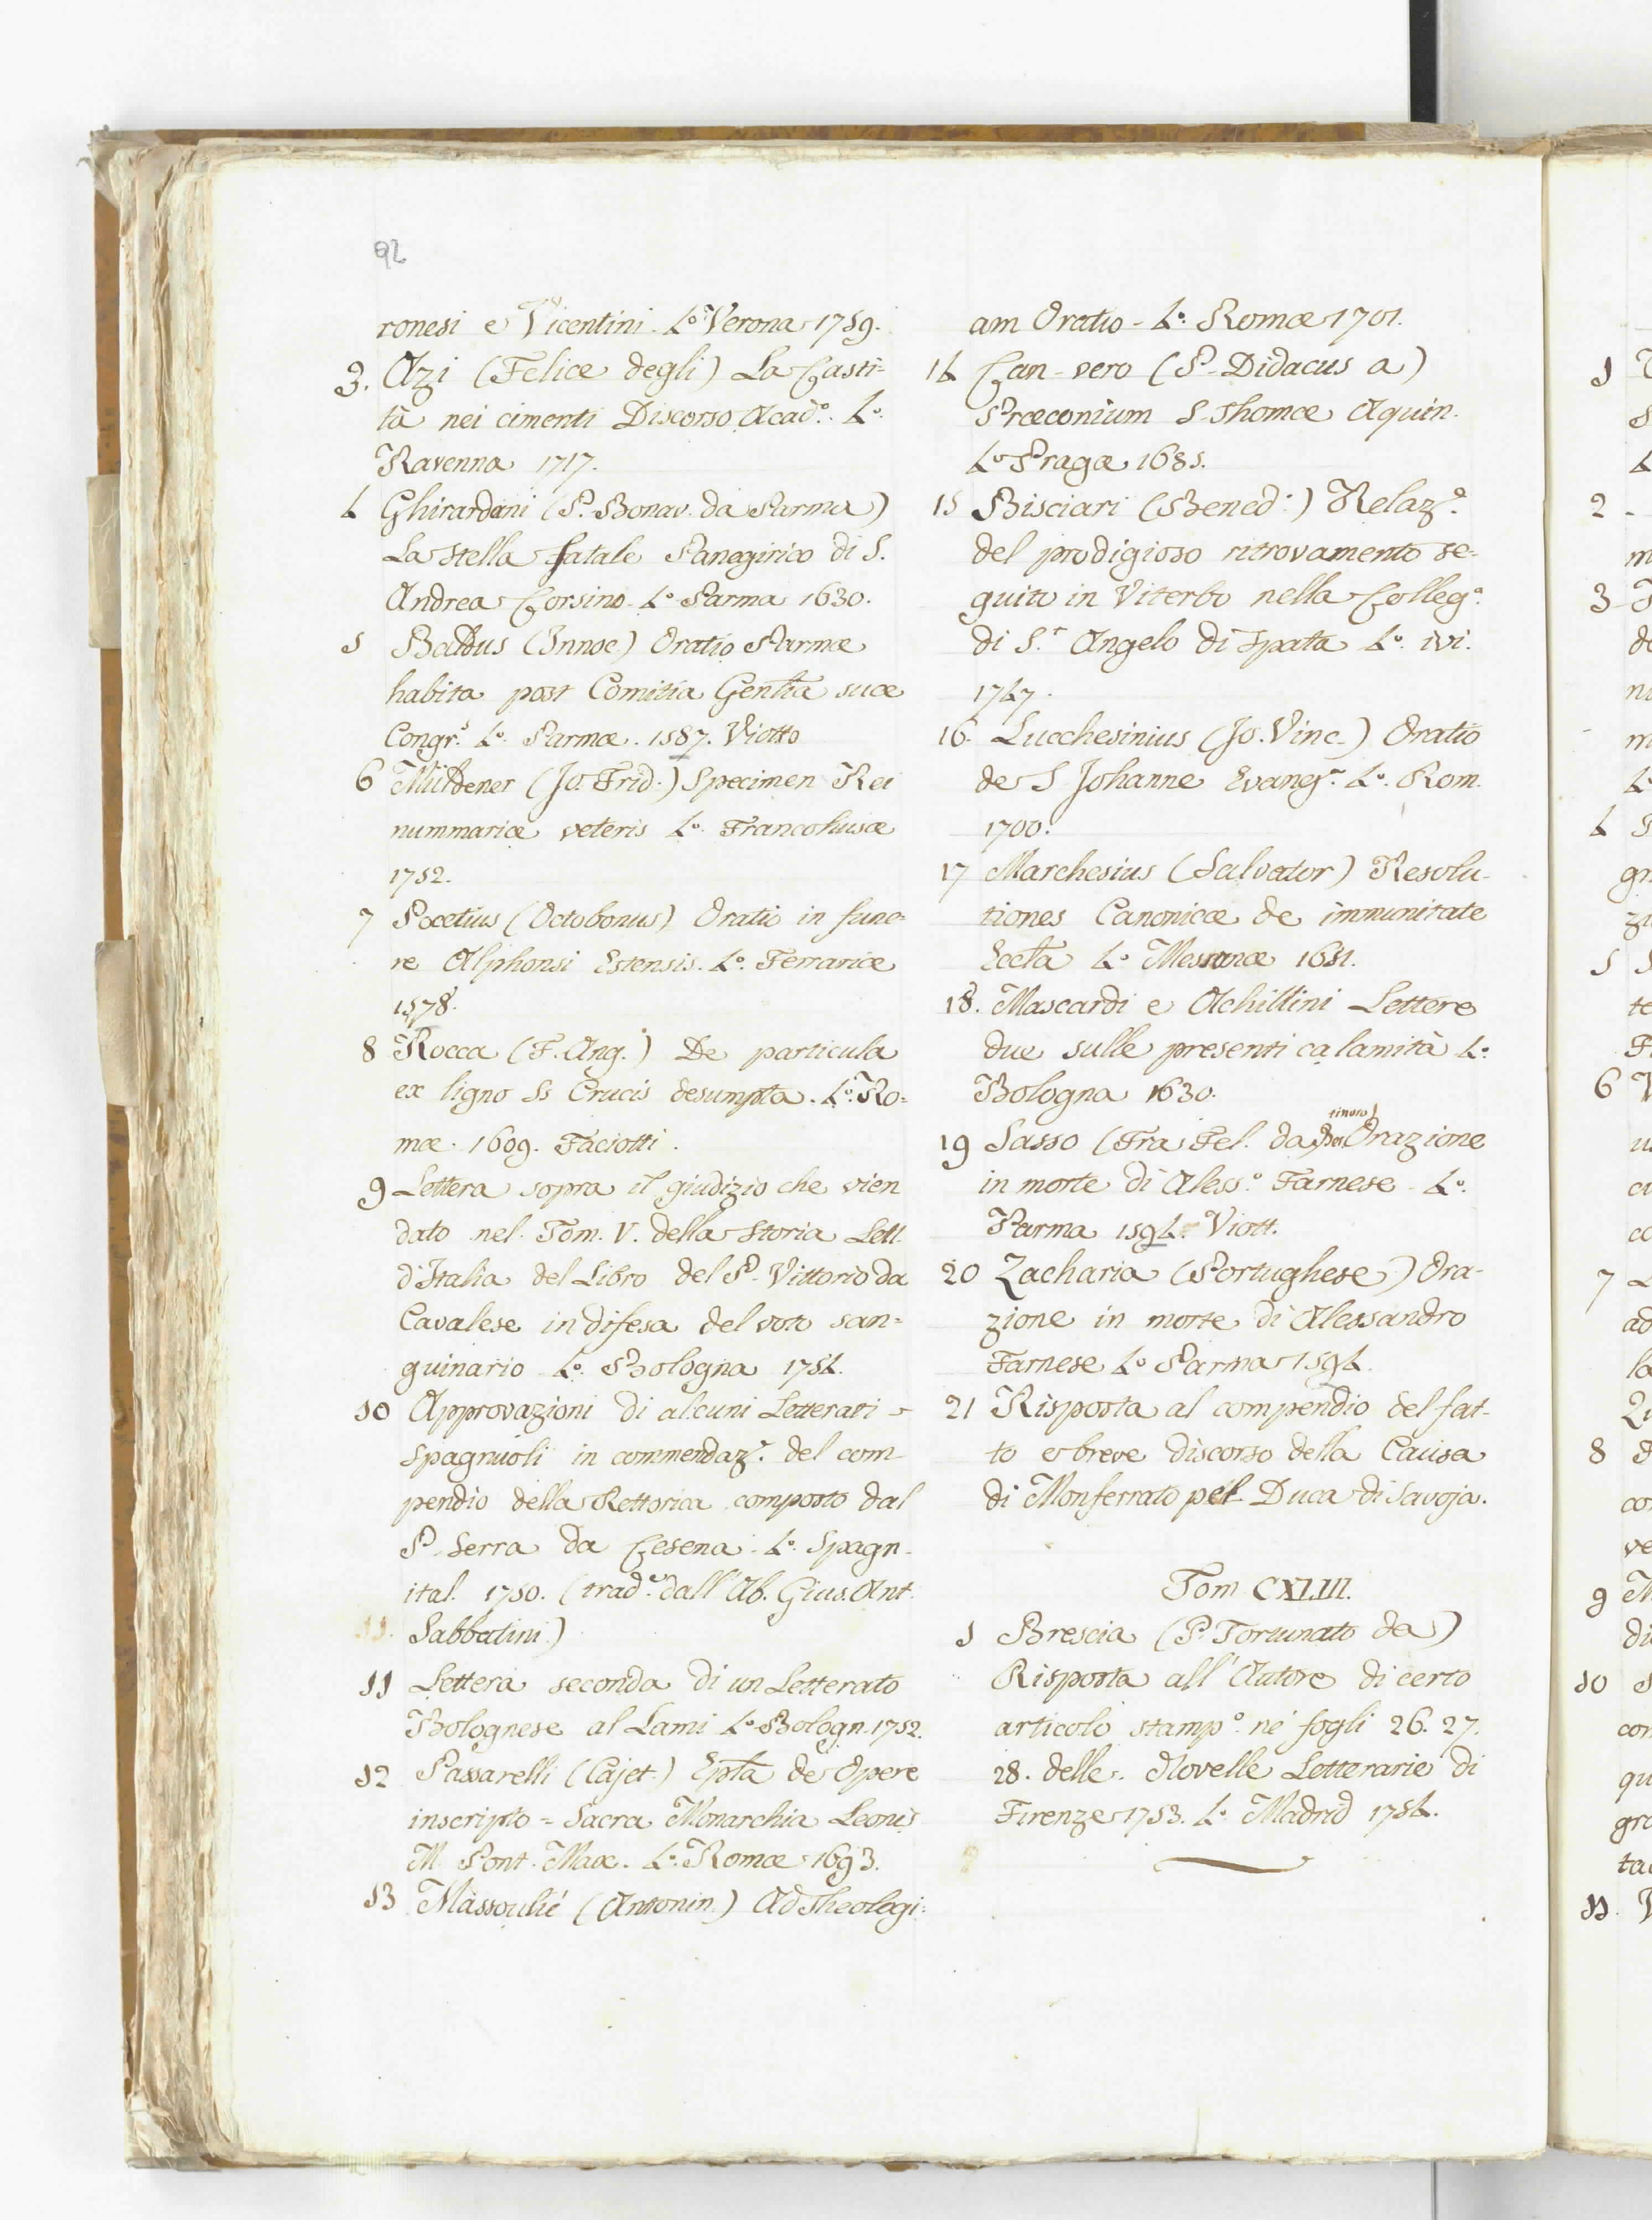 92
ronesi e Vicentini. 4.º Verona 1759.
3. Azi (Felice degli) La Casti-
tà nei cimenti Discorso Acad.º 4.º
Ravenna 1717.
4 Ghirardani (P. Bonav. da Parma)
La stella fatale Panegirico di S.
Andrea Corsino. 4.º Parma 1630.
5 Baldus (Innoc.) Oratio Parmæ
habita post Comitia Gentlia suæ
Congr.s 4.º Parmæ. 1587. Viotto
6 Müldener (Jo. Frid.) Specimen Rei
nummariæ veteris 4.º Francohusæ
1752.
7 Pocetius (Octobonus) Oratio in fune-
re Alphonsi Estensis. 4.º Ferrariæ
1578.
8 Rocca (F. Ang.) De particula
ex ligno Ss Crucis desumpta. 4.º Ro-
mæ. 1609. Faciotti.
9 Lettera sopra il giudizio che vien
dato nel. Tom. V. della Storia Lett.
d'Italia del Libro del P. Vittorio da
Cavalese in difesa del voto san-
guinario 4.º Bologna 1754.
10 Approvazioni di alcuni Letterati
spagnuoli in commendaz.e del com-
pendio della Rettorica composto dal
P. Serra da Cesena. 4.º Spagn.
ital. 1750. (trad.e dall' Ab. Gius. Ant.
Sabbatini)
11 Lettera seconda di un Letterato
Bolognese al Lami 4.º Bologn. 1752.
12 Passarelli (Cajet.) Epla de Opere
inscripto = Sacra Monarchia Leonis
M. Pont. Max. 4.º Romæ 1693.
13 Massoulié (Antonin.) Ad Theologi-
am Oratio - 4.º Romæ 1701.
14 Can-vero (P. Didacus a)
Præconium S. Thomæ Aquin.
4.º Pragæ 1685.
15 Bisciari (Bened.) Relaz.e
del prodigioso ritrovamento se-
guito in Viterbo nella Colleg.a
di S.t Angelo di Spata 4.º ivi.
1747.
16. Lucchesinius (Jo. Vinc.) Oratio
de S Johanne Evang. 4.º Rom.
1700.
17 Marchesius (Salvator) Resolu-
tiones Canonicæ de immunitate
Eccla 4.º Messanæ 1651.
18. Mascardi e Achillini Lettere
due sulle presenti calamità 4.º
Bologna 1630.
19 Sasso (Fra Fel. da Bertinoro) Orazione
in morte di Aless.º Farnese 4.º
Parma 1594. Viott.
20 Zacharia (Portughese) Ora-
zione in morte di Alessandro
Farnese 4.º Parma 1594.
21 Risposta al compendio del fat-
to e breve discorso della Causa
di Monferrato pel Duca di Savoja.
Tom CXLIII.
1 Brescia (P. Fortunato da)
Risposta all' Autore di certo
articolo stamp.º ne' fogli 26. 27.
28. delle Novelle Letterarie di
Firenze 1753. 4.º Madrid 1754.